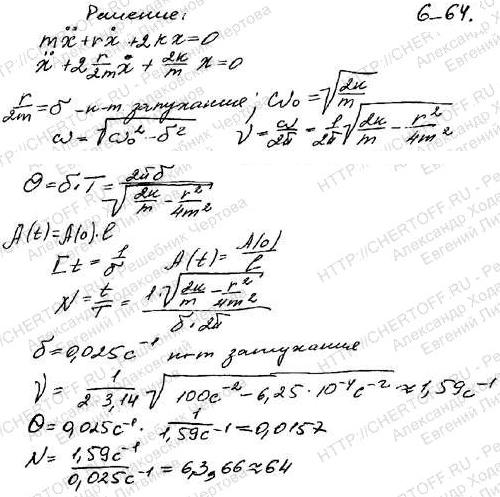 Решение: 6-64.
mẍ+rẋ+2kx=0
ẍ+2 r/2m ẋ + 2k/m x=0
r/2m=δ - к-т затухания; ω₀=√(2k/m)
ω=√(ω₀²-δ²) ν=ω/2π=1/2π √(2k/m - r²/4m²)
Θ=δ·T=2πδ/√(2k/m - r²/4m²)
A(t)=A(0)·e
t=1/δ A(t)=A(0)/e
N=t/T=1·√(2k/m - r²/4m²)/δ·2π
δ=0,025c⁻¹ к-т затухания
ν=1/2·3,14 √(100c⁻²-6,25·10⁻⁴c⁻²)≈1,59c⁻¹
Θ=0,025c⁻¹·1/1,59c⁻¹=0,0157
N=1,59c⁻¹/0,025c⁻¹=63,66≈64
HTTP://CHERTOFF.RU - Решебник Чертова